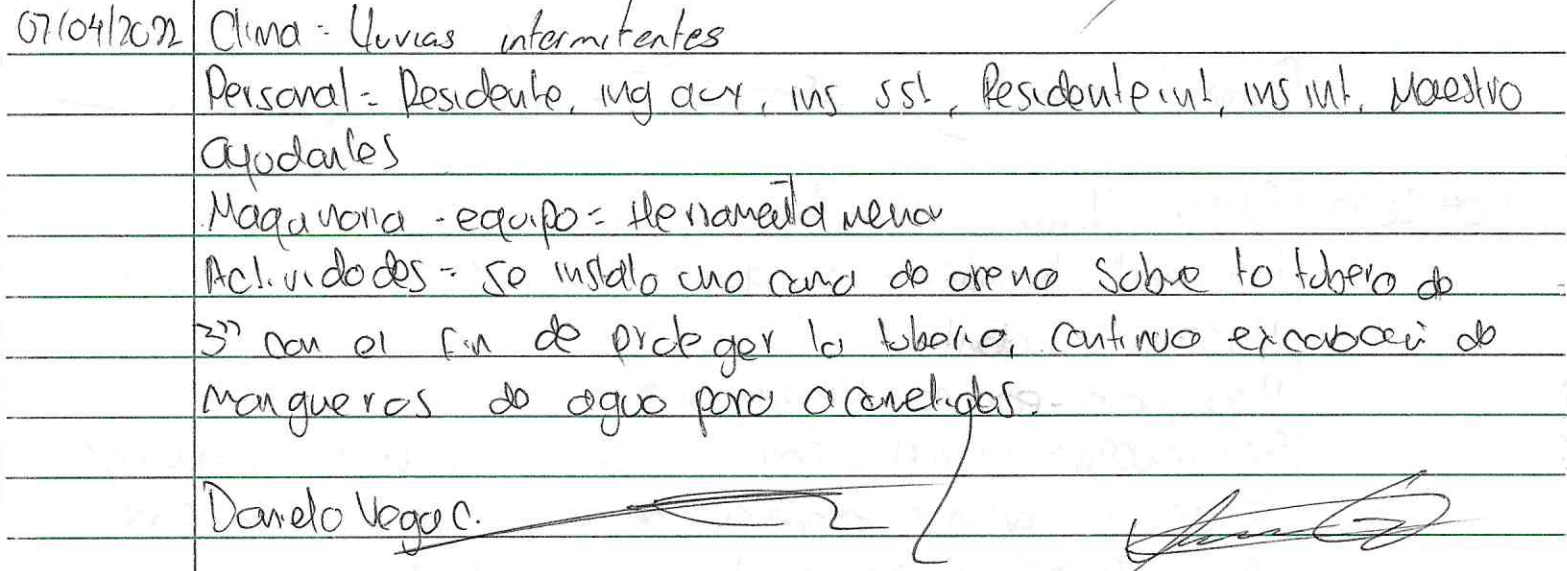 07/04/2022 Clima = lluvias intermitentes
Personal = Residente, ing acr, ins sst, Residente int, ins int, Maestro
ayudantes
Maquinaria - equipo = Herramienta menor
Actividades = se instalo una cama de arena sobre la tubera de
3" con el fin de proteger la tuberia, continua excabacci de
mangueras de agua para acometidas.
Danelo Vega C.